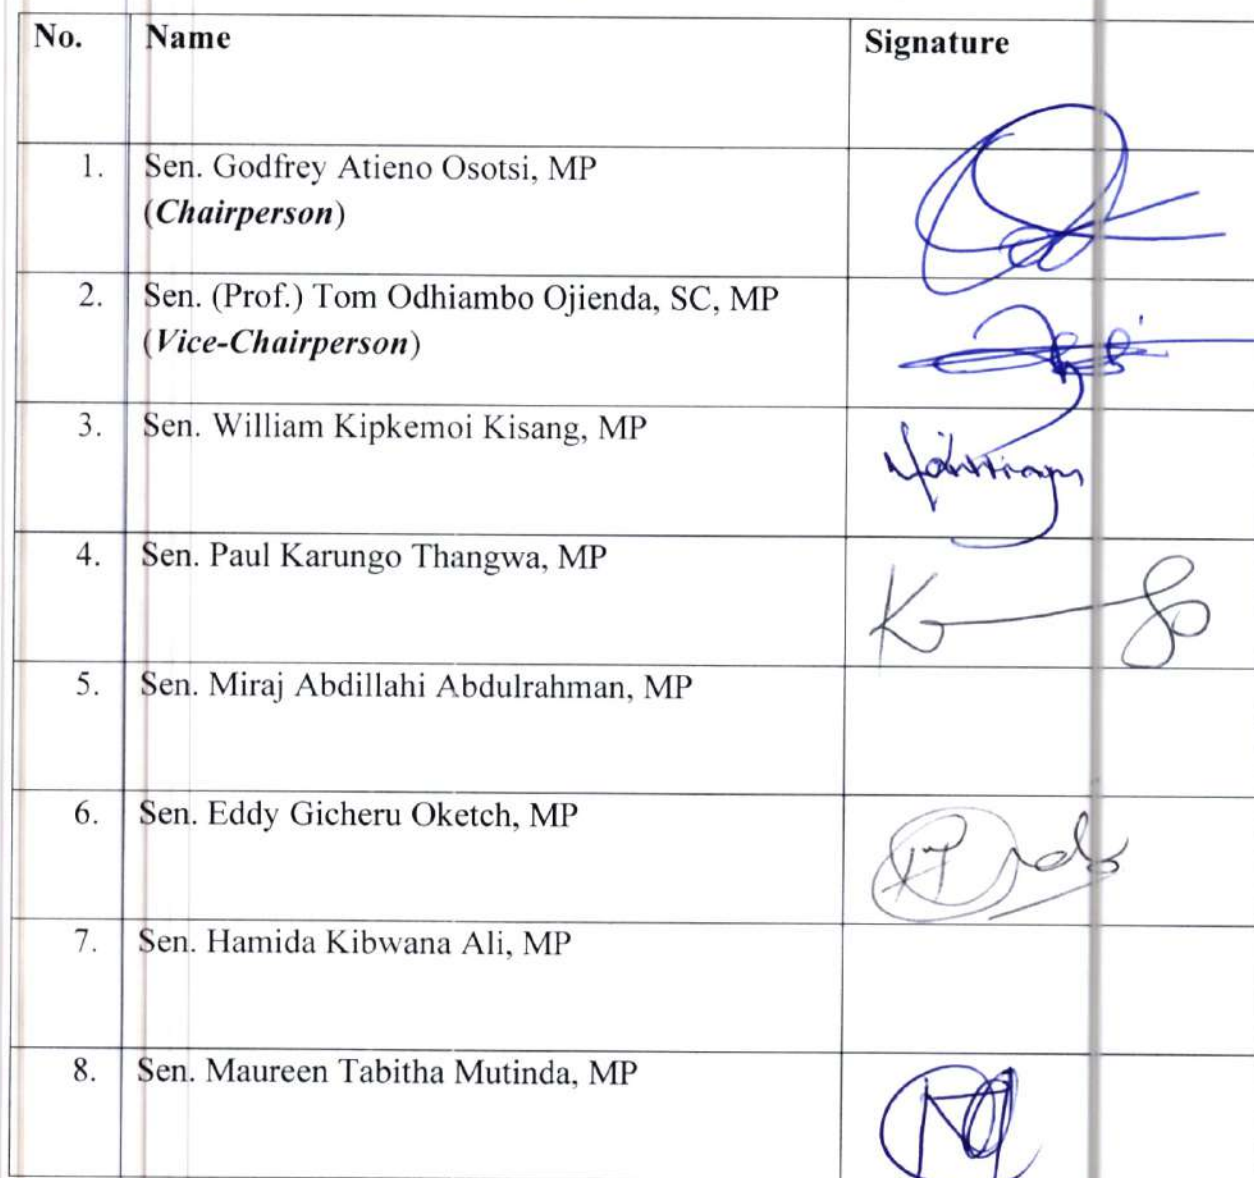 No. Name Signature
1. Sen. Godfrey Atieno Osotsi, MP
(Chairperson)
2. Sen. (Prof.) Tom Odhiambo Ojienda, SC, MP
(Vice-Chairperson)
3. Sen. William Kipkemoi Kisang, MP
4. Sen. Paul Karungo Thangwa, MP
5. Sen. Miraj Abdillahi Abdulrahman, MP
6. Sen. Eddy Gicheru Oketch, MP
7. Sen. Hamida Kibwana Ali, MP
8. Sen. Maureen Tabitha Mutinda, MP